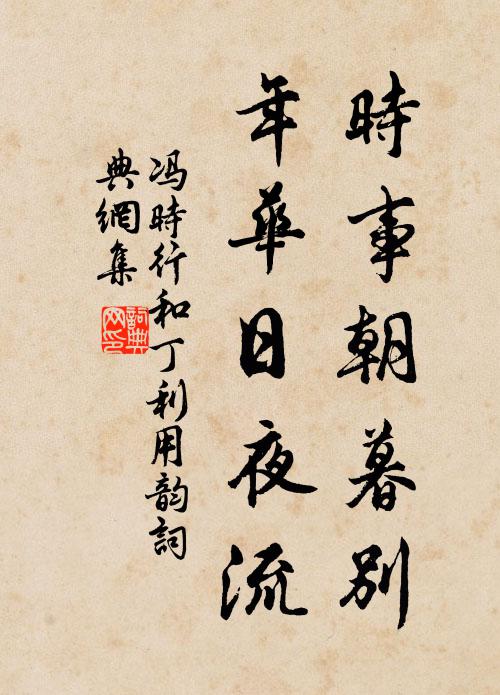 時事朝暮别
年華日夜流
冯時行和丁利用韵詞
典網集
詞典
网印